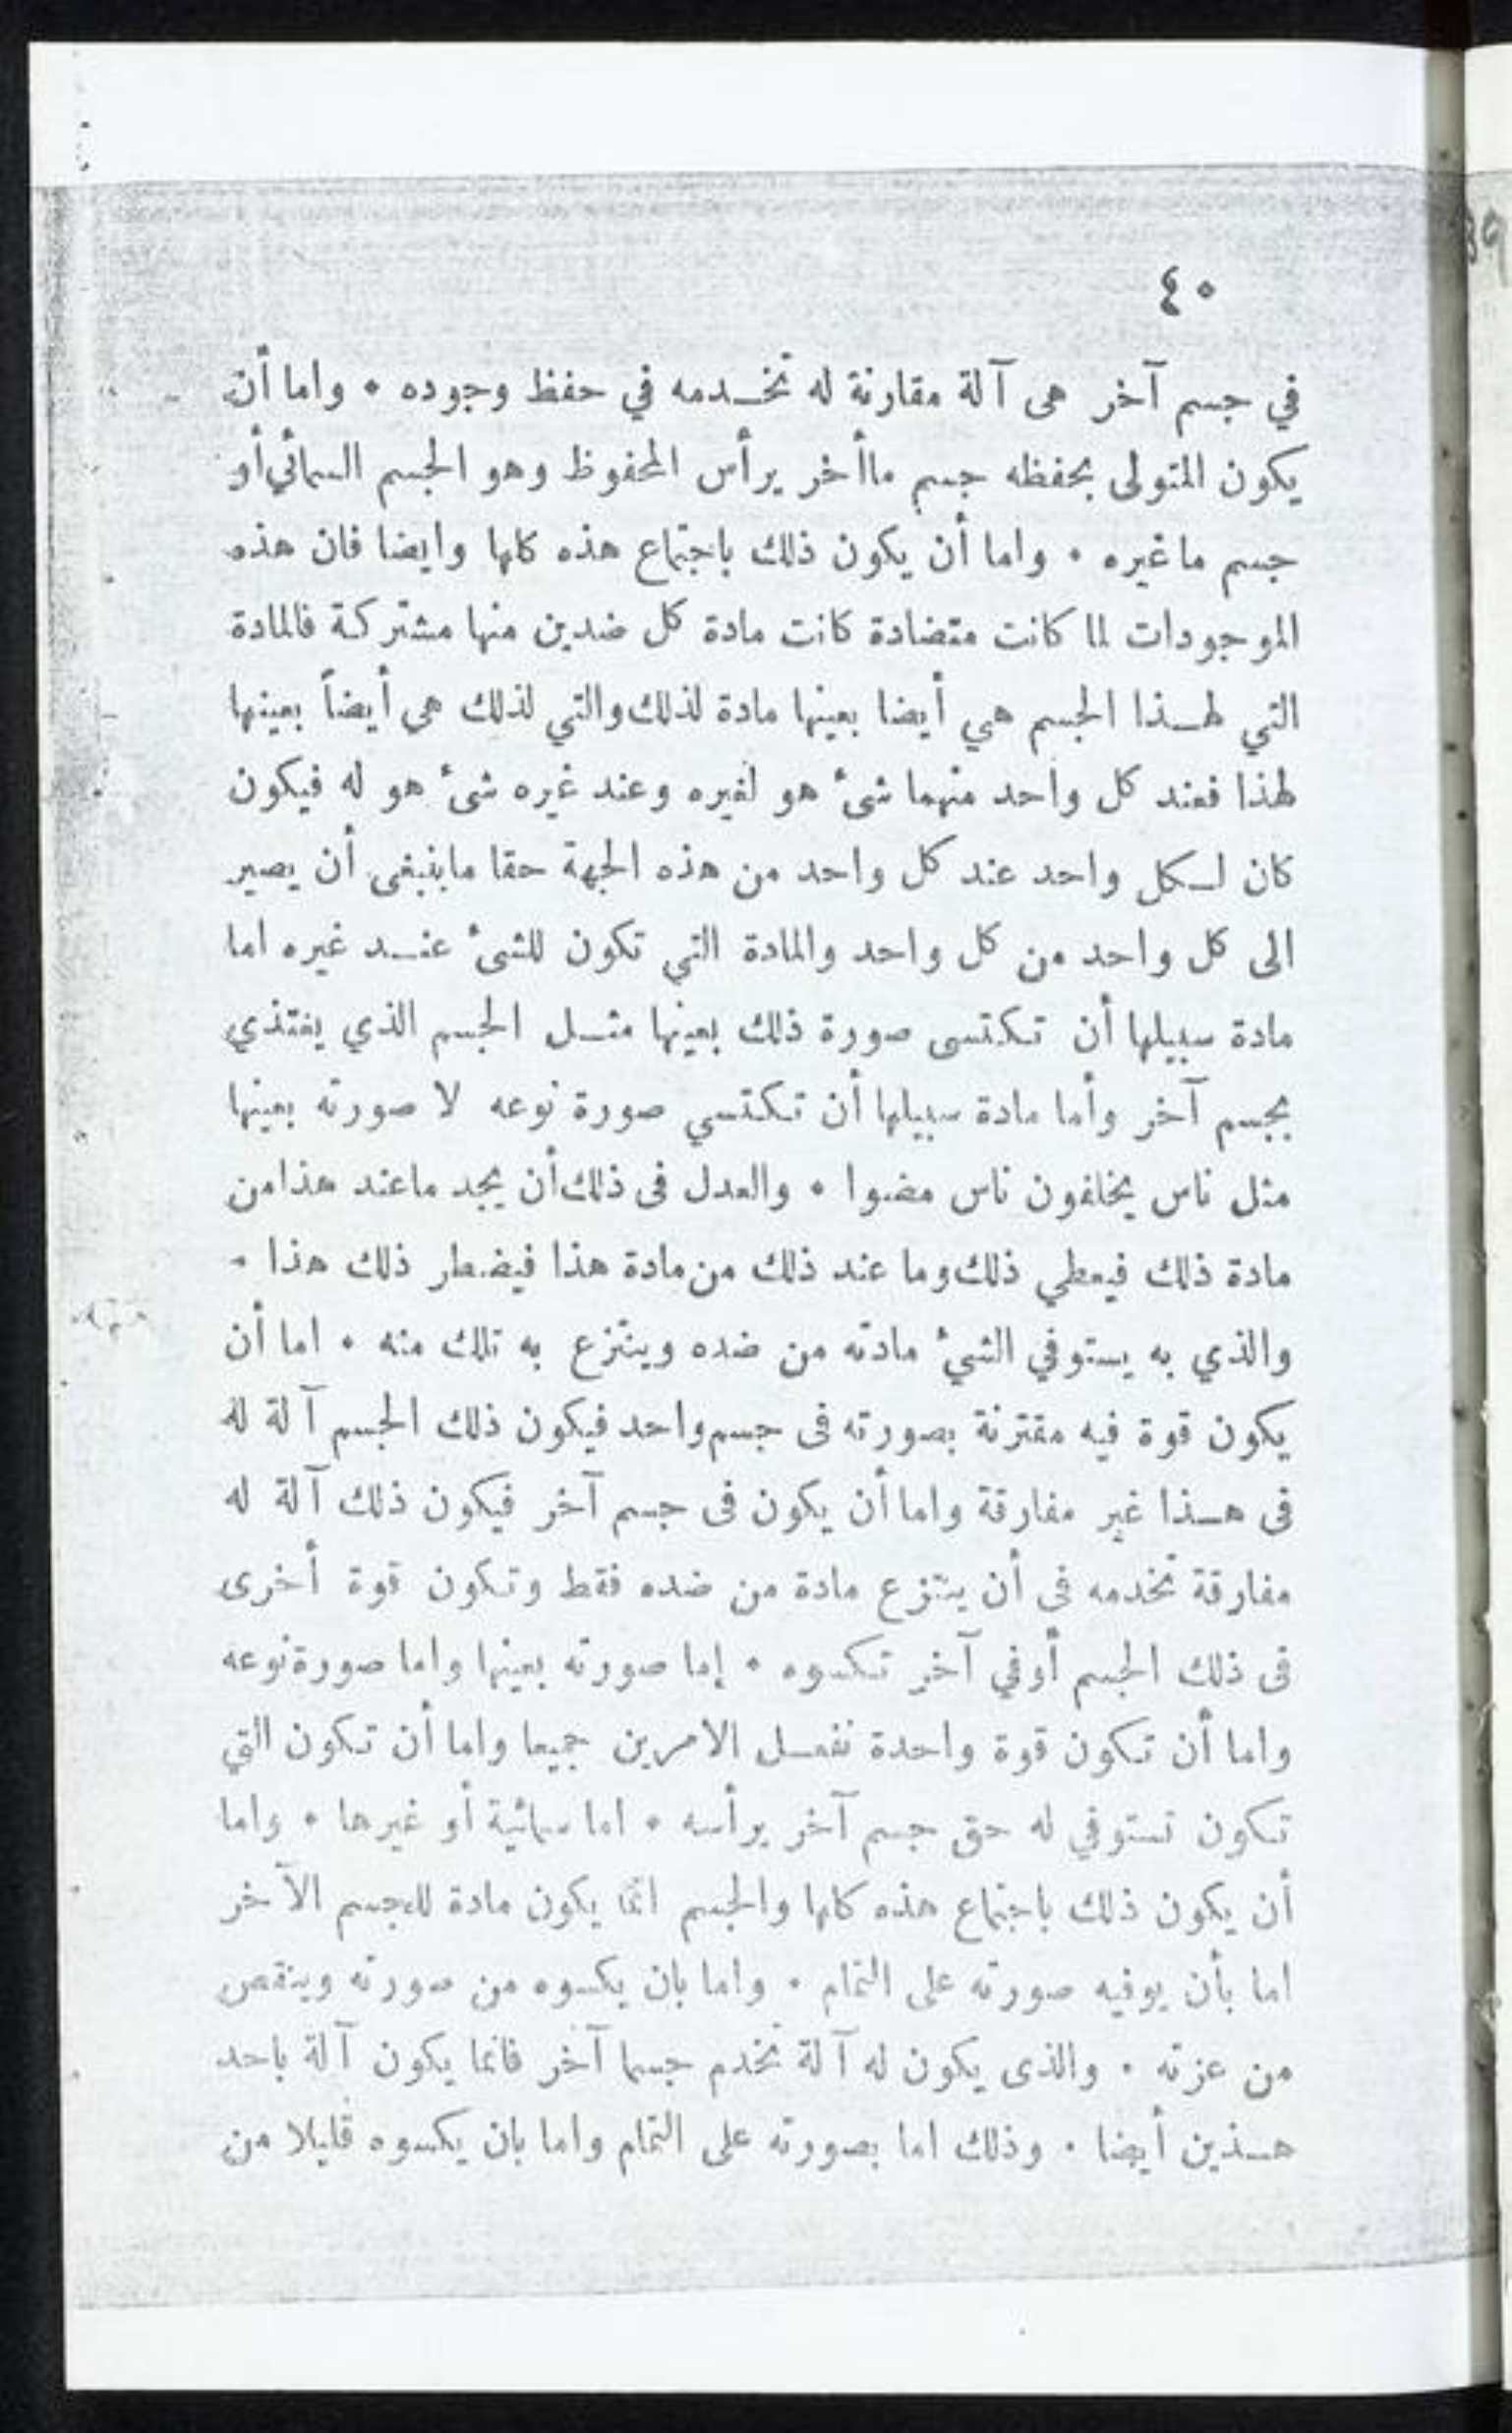 ٤٠
في جسم آخر هى آلة مقارنة له تخدمه في حفظ وجوده • واما أن
يكون المتولى بحفظه جسم ماأخر يرأس المحفوظ وهو الجسم السمائي أو
جسم ما غيره • واما أن يكون ذلك باجتماع هذه كلها وايضا فان هذه
الموجودات لما كانت متضادة كانت مادة كل ضدين منها مشتركة فالمادة
التي لهذا الجسم هي أيضا بعينها مادة لذلك والتي لذلك هى أيضاً بعينها
لهذا فعند كل واحد منهما شىء هو لغيره وعند غيره شىء هو له فيكون
كان لكل واحد عند كل واحد من هذه الجهة حقا ماينبغى أن يصير
الى كل واحد من كل واحد والمادة التي تكون للشىء عند غيره اما
مادة سبيلها أن تكتسى صورة ذلك بعينها مثل الجسم الذي يغتذي
بجسم آخر وأما مادة سبيلها أن تكتسي صورة نوعه لا صورته بعينها
مثل ناس يخلفون ناس مضوا • والعدل فى ذلك أن يجد ماعند هذا من
مادة ذلك فيعطي ذلك وما عند ذلك من مادة هذا فيضطر ذلك هذا -
والذي به يستوفي الشيء مادته من ضده وينتزع به تلك منه • اما أن
يكون قوة فيه مقترنة بصورته فى جسم واحد فيكون ذلك الجسم آلة له
فى هذا غير مفارقة واما أن يكون فى جسم آخر فيكون ذلك آلة له
مفارقة تخدمه في أن ينتزع مادة من ضده فقط وتكون قوة أخرى
فى ذلك الجسم أوفي آخر تكسوه • إما صورته بعينها واما صورة نوعه
واما أن تكون قوة واحدة تفعل الامرين جميعا واما أن تكون التي
تكون تستوفي له حق جسم آخر برأسه • اما سمائية أو غيرها • واما
أن يكون ذلك باجتماع هذه كلها والجسم انما يكون مادة للجسم الآخر
اما بأن يوفيه صورته على التمام • واما بان يكسوه من صورته وينقص
من عزته • والذى يكون له آلة تخدم جسما آخر فانما يكون آلة باحد
هذين أيضا • وذلك اما بصورته على التمام واما بان يكسوه قليلا من